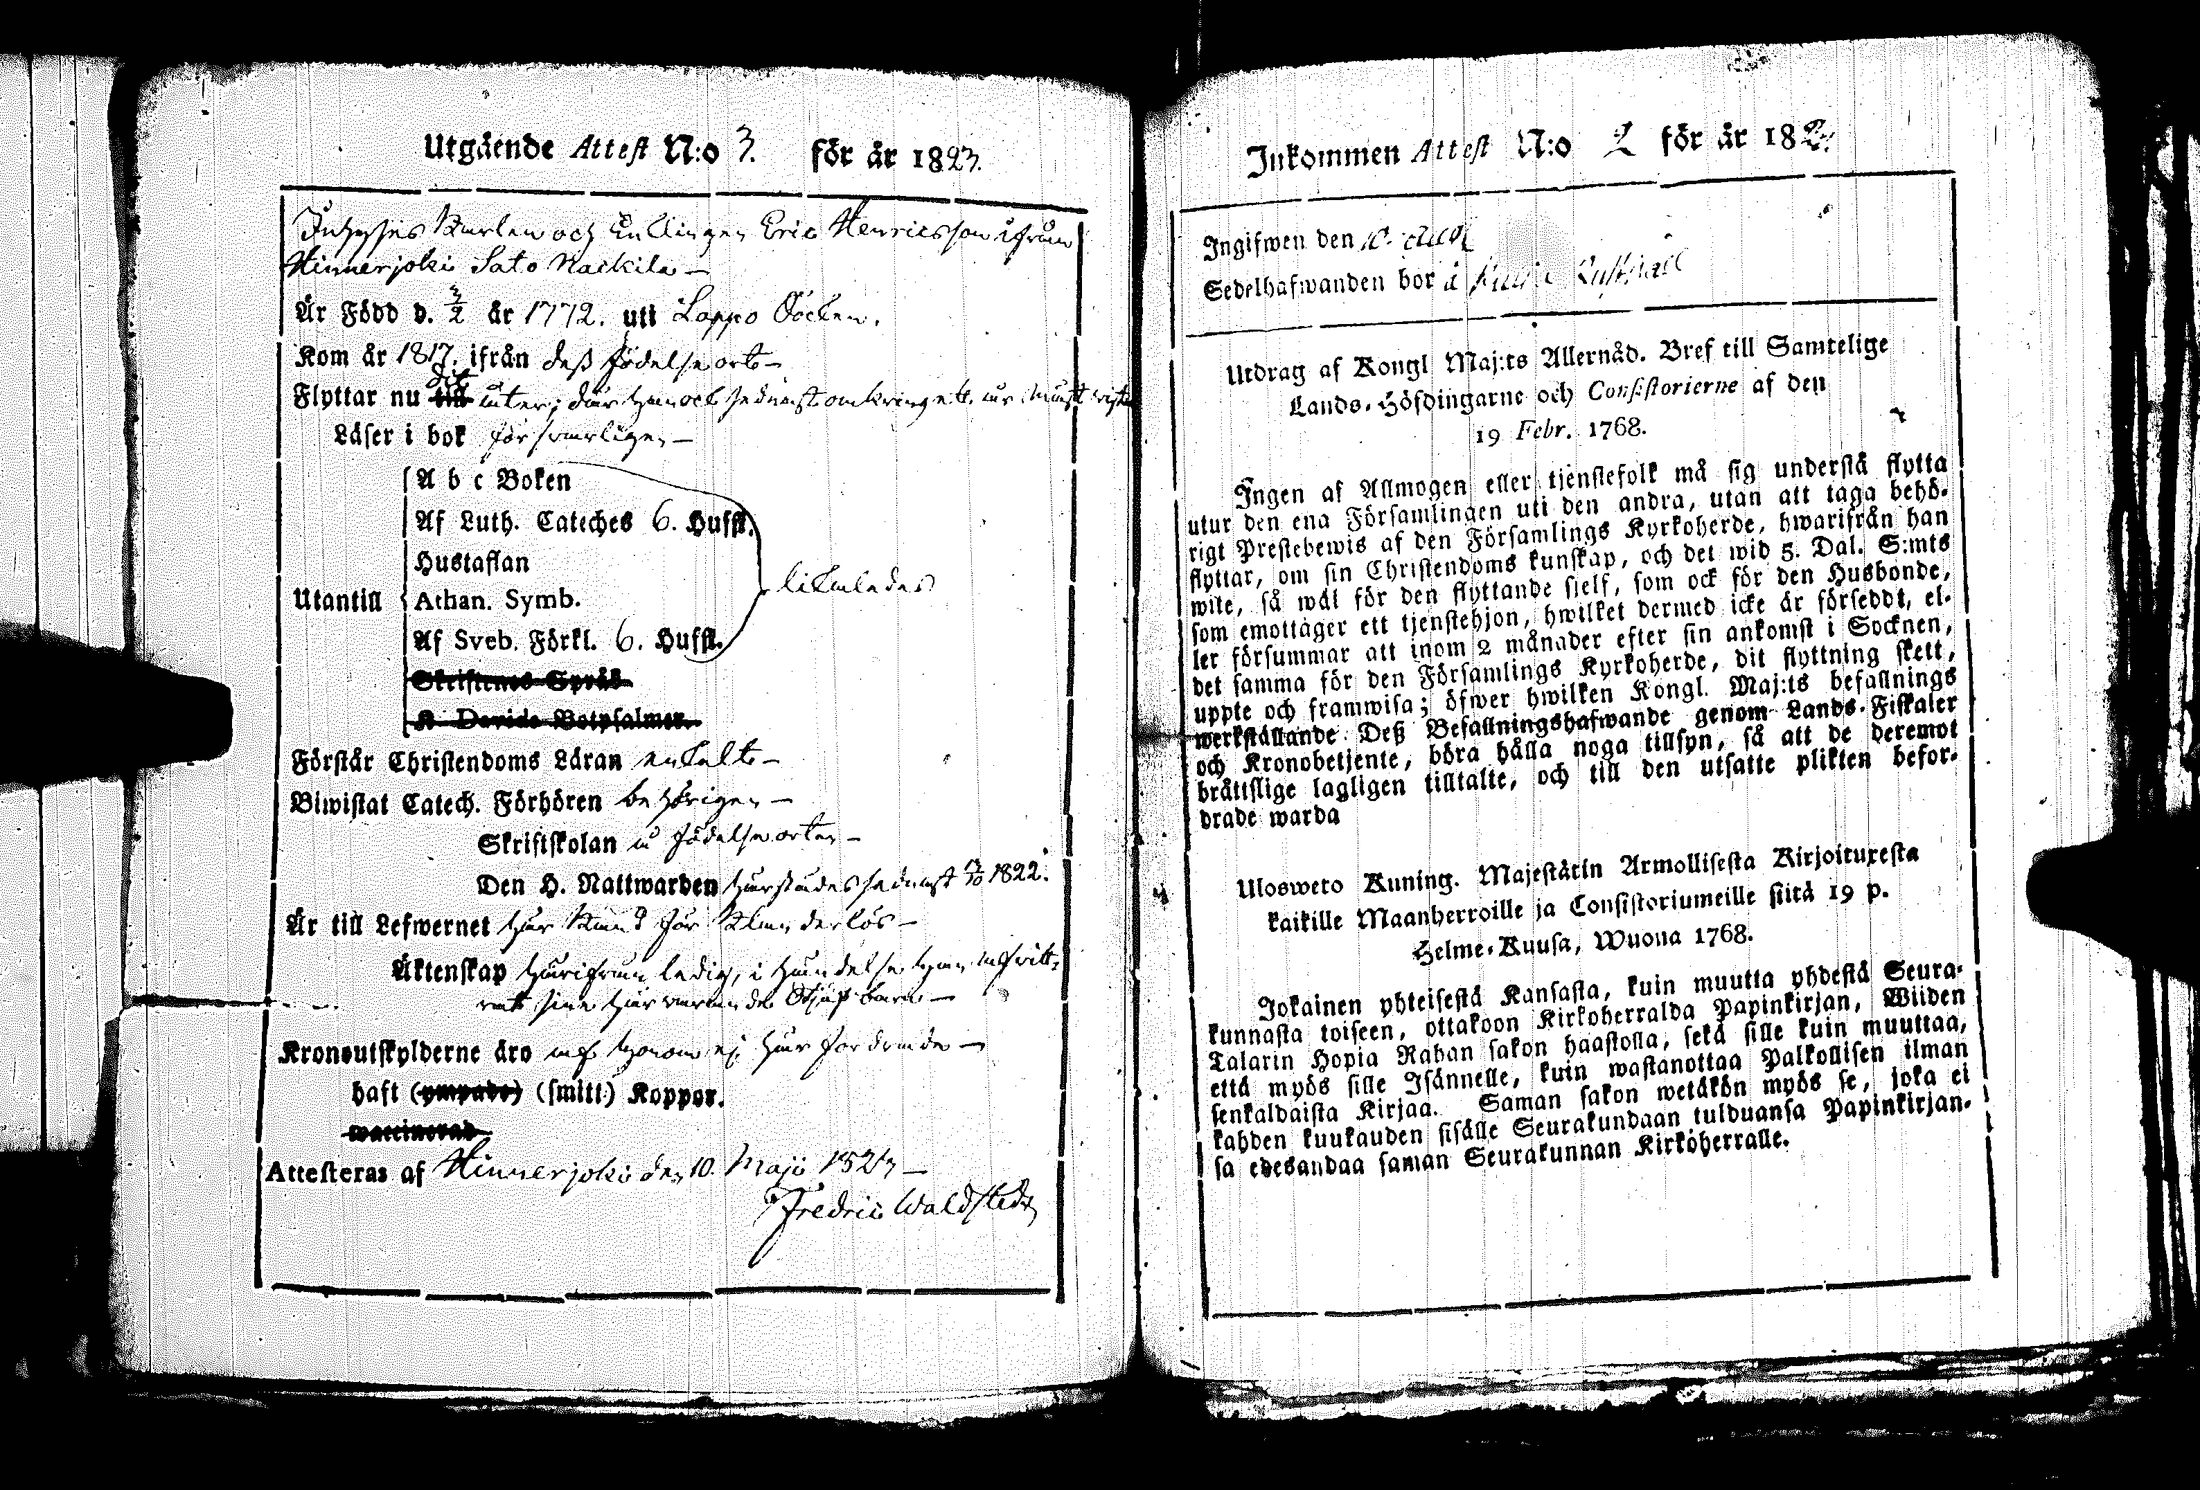 Utgående Attest N:o 3. för år 1823.
Inhyses Karlen och Enklingen Eric Henricsson ifrån
Hinnerjoki Sato Rackila –
Är Född d. 3/2 år 1772. uti Lappo Socken.
Kom år 1817. ifrån dess födelse ort –
Flyttar nu dit åter; där han ock sednast omkring ett år
Läser i bok försvarligen –
A b c Boken
Af Luth. Cateches 6. Huffst.
Hustaflan
Utantill Athan. Symb. likaledes
Af Sveb. Förkl. 6. Huffst.
Skriftenes Språk
K. Davids Botpsalmer.
Förstår Christendoms Läran enkelt –
Biwistat Catech. Förhören behörigen –
Skriftskolan i födelse orten –
Den H. Nattwarden härstädes sednast 1822.
Är till Lefwernet här känd för klanderlös –
Äktenskap härifrån ledig, i händelse han
sine här varande Stjuf barn –
Kronoutskylderne äro af honom ej här fordrade –
haft (ympade) (smitt.) Koppor.
waccinerad
Attesteras af Hinnerjoki den 10. Maji 1823 –
Fredric Waldstedt
Inkommen Attest N:o 2 för år 182
Ingifwen den 10.
Sedelhafwanden bor å
Utdrag af Kongl Maj:ts Allernåd. Bref till Samtelige
Lands-Höfdingarne och Consistorierne af den
19 Febr. 1768.
Ingen af Allmogen eller tjenstefolk må sig understå flytta
utur den ena Församlingen uti den andra, utan att taga behö-
rigt Prestebewis af den Församlings Kyrkoherde, hwarifrån han
flyttar, om sin Christendoms kunskap, och det wid 5. Dal. S:mts
wite, så wäl för den flyttande sjelf, som ock för den Husbonde,
som emottager ett tjenstehjon, hwilket dermed icke är försedt, el-
ler försummar att inom 2 månader efter sin ankomst i Socknen,
det samma för den Församlings Kyrkoherde, dit flyttning skett,
uppte och framwisa; öfwer hwilken Kongl. Maj:ts befallnings
werkställande Deß Befallningshafwande genom Lands-Fiskaler
och Kronobetjente, böra hålla noga tillsyn, så att de deremot
bråttslige lagligen tilltalte, och till den utsatte plikten befor-
drade warda
Ulosweto Kuning. Majestätin Armollisesta Kirjoituxesta
kaikille Maanherroille ja Consistoriumeille siitä 19 p.
Helme-Kuusa, Wuona 1768.
Jokainen yhteisestä Kansasta, kuin muutta yhdestä Seura-
kunnasta toiseen, ottakoon Kirkoherralda Papinkirjan, Wiiden
Talarin Hopia Rahan sakon haastolla, sekä sille kuin muuttaa,
että myös sille Isännelle, kuin wastanottaa Palkollisen ilman
senkaldaista Kirjaa. Saman sakon wetäkön myös se, joka ei
kahden kuukauden sisälle Seurakundaan tulduansa Papinkirjan-
sa edesandaa saman Seurakunnan Kirkoherralle.